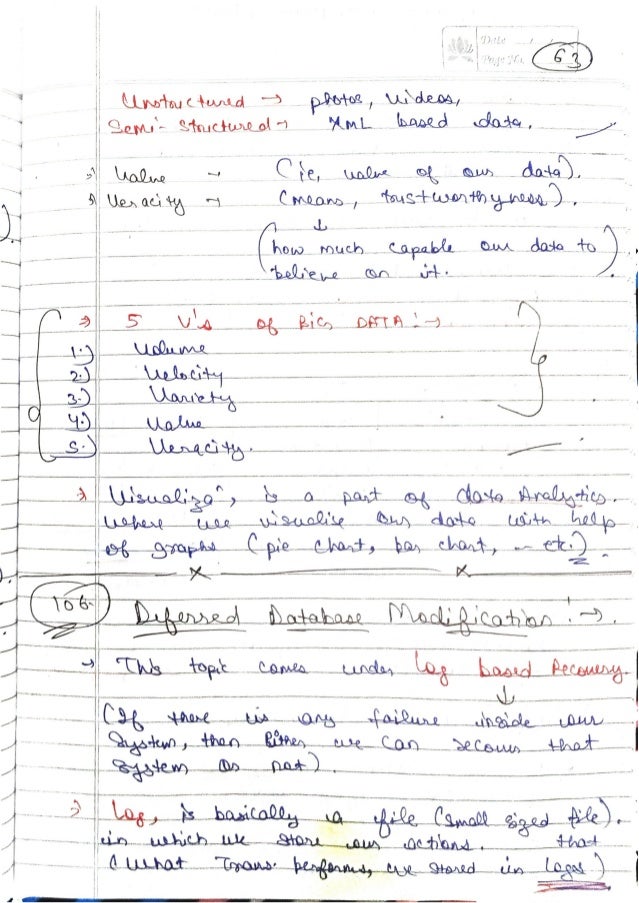 Date
Page No. 63
Unstructured → photos, videos,
Semi-Structured → XML based data.
⇒ Value → (ie, value of our data).
⇒ Veracity → (means, trustworthyness).
↓
(how much capable our data to
believe on it.)
⇒ 5 V's of BIG DATA :→
1.) Volume
2.) Velocity
3.) Variety
4.) Value
5.) Veracity.
⇒ Visualizaⁿ, is a part of data Analytics.
where we visualise our data with help
of graphs (pie chart, bar chart, -- etc.).
x x
106. Deferred Database Modification :→.
→ This topic comes under log based Recovery.
↓
(If there is any failure inside our
System, then Either we can recover that
System or not).
⇒ Log, is basically a file (small sized file).
in which we store our actions. that
(what Trans. performs, we stored in Logs)